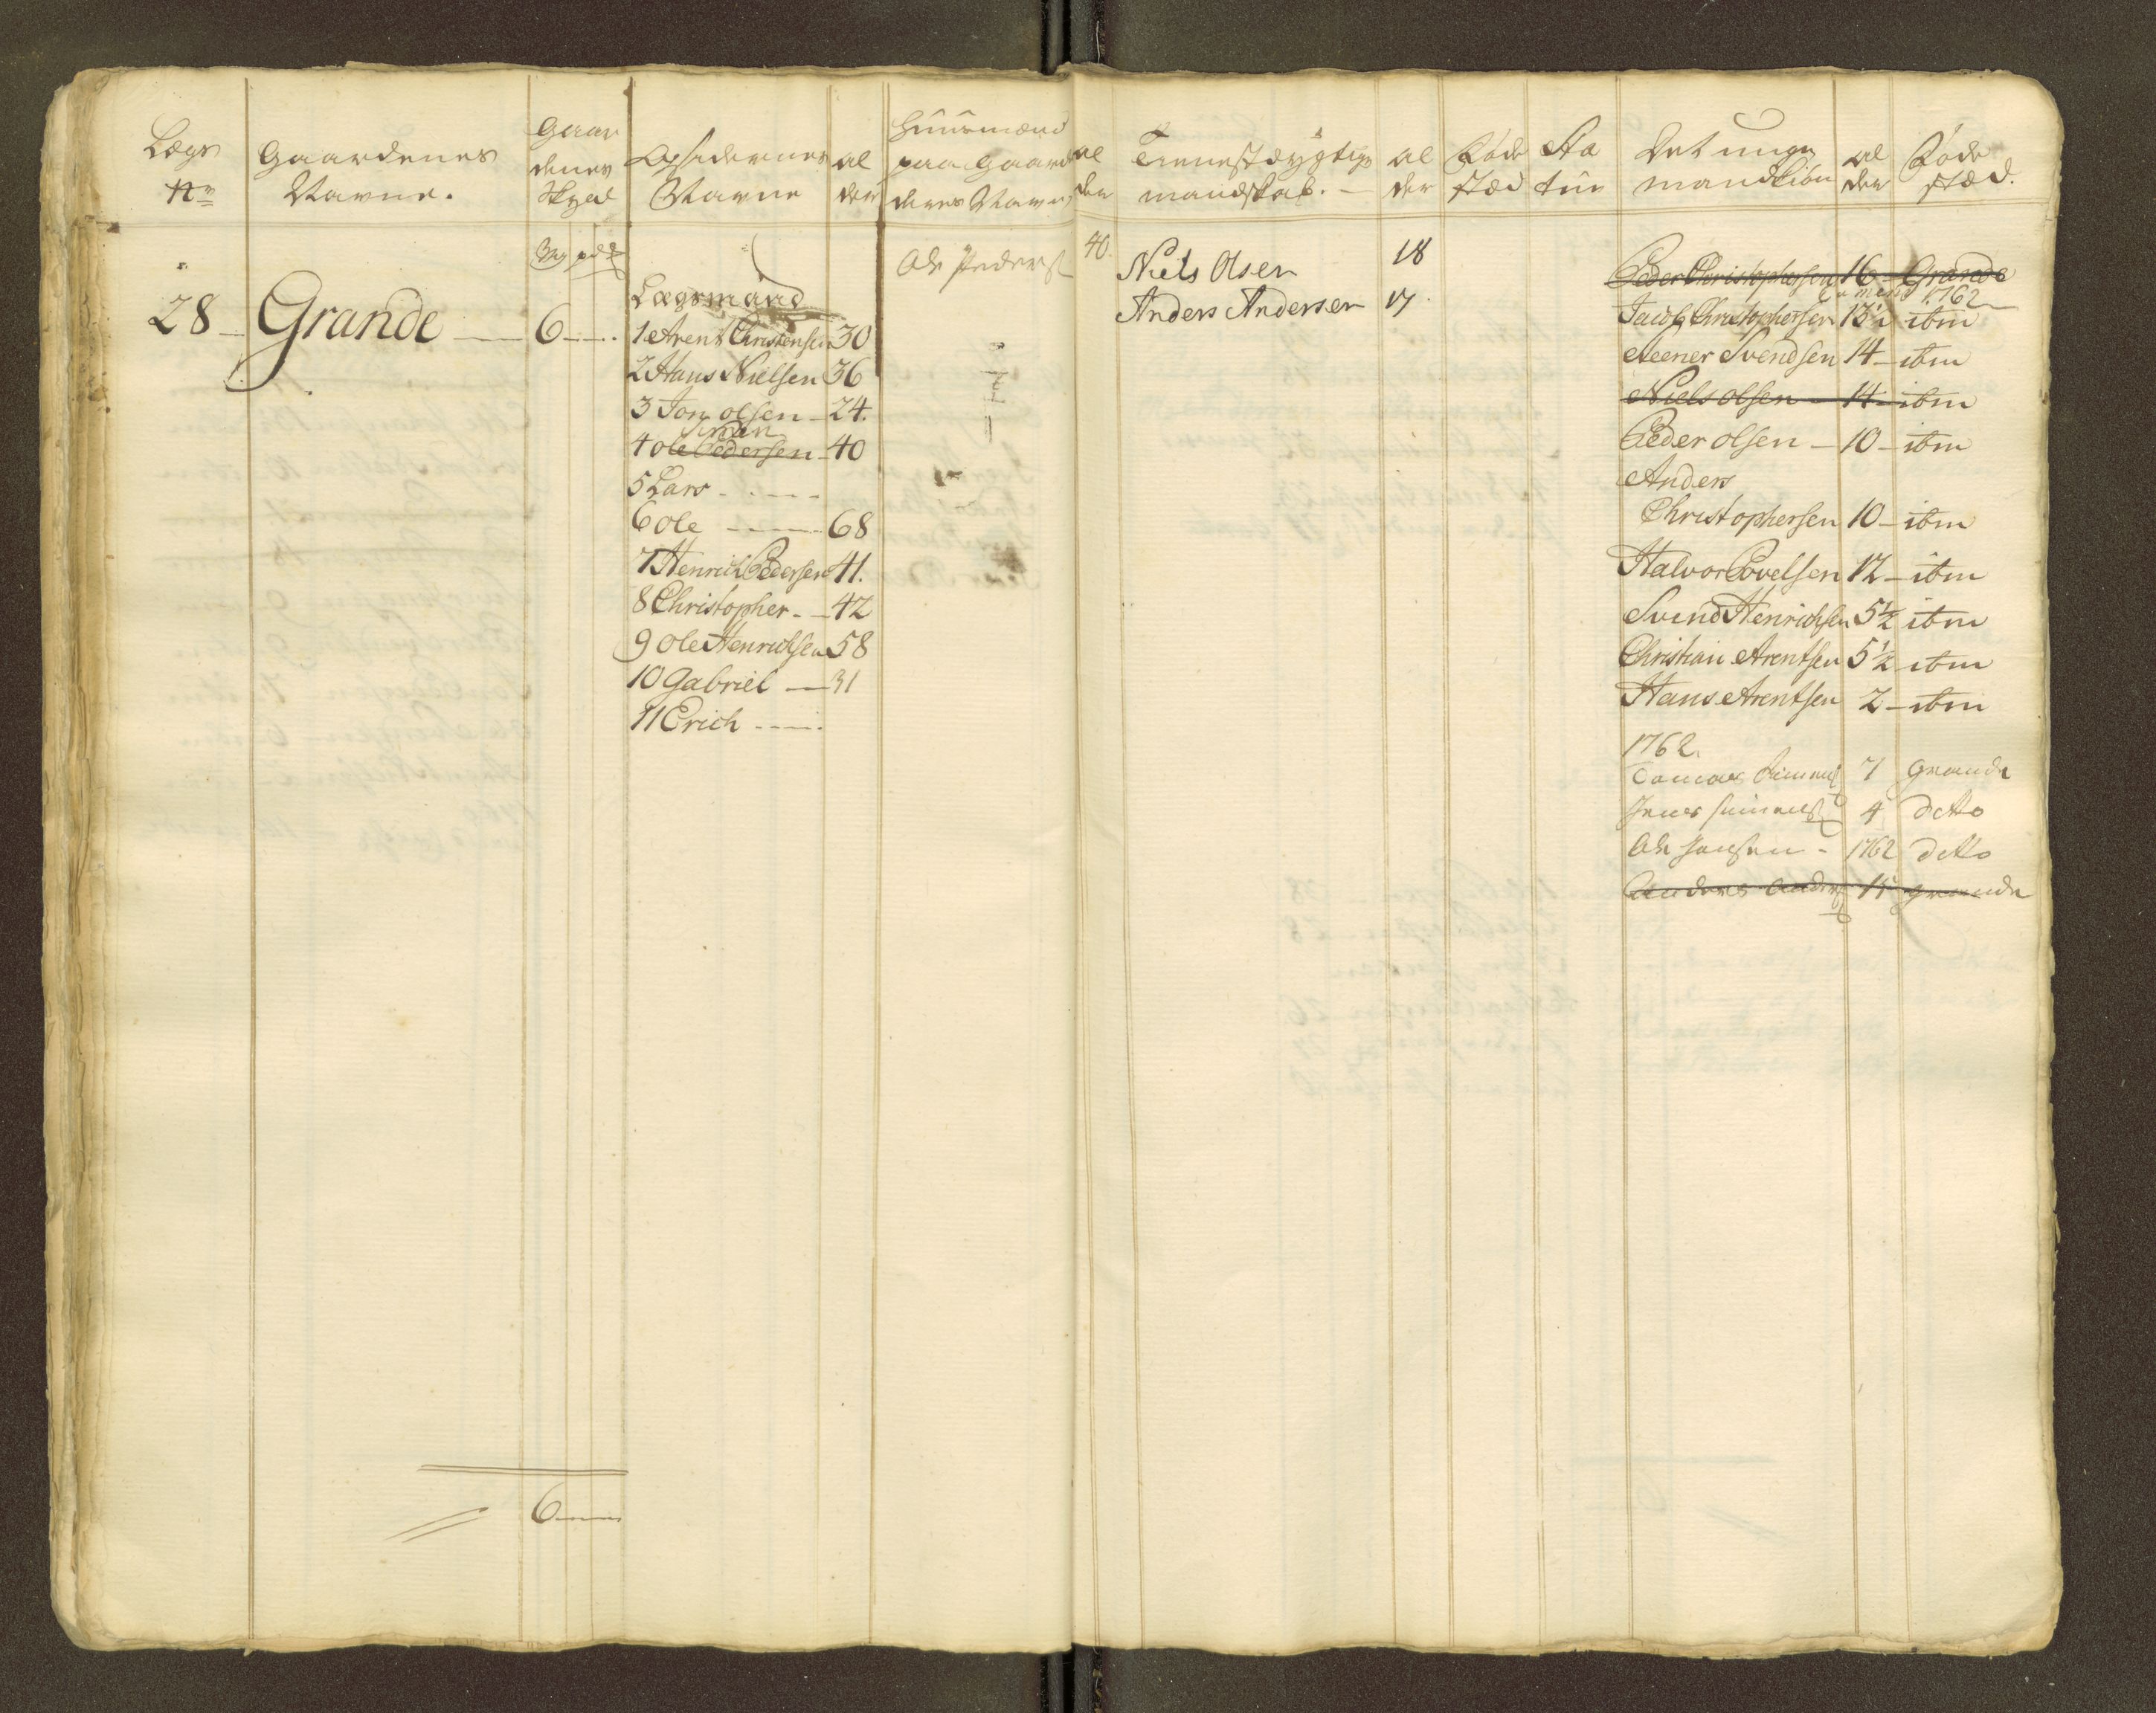 Lægs
No
Gaardenes
Navne.
Gaar
denes
Skyld
Opsidernes
Navne
al
der
Huusmænd
paa Gaard
deres Navne
al
der
Tienestdygtige
mandskab.
al
der
Føde
stæd
Sta
tur
Det unge
mandskib
al
der
Føde
stæd.
28 Grande 6
Lægsmand
1 Arent Christensen 30
2 Hans Nielsen 36
3 Jon olsen 24.
Simen
4 ole Pedersen 40
5 Lars
6 ole 68
7 Henrich Pedersen 41.
8 Christopher 42
9 ole Henrichsen 58
10 Gabriel 31
11 Erich
Ole Peders 40.
Niels Olsen 18
Anders Andersen 17.
Peder Christophersen 16 Grande
1762
Jacob Christophersen 13½ ibm
Aener Svendsen 14 ibm
Niels olsen 14 ibm
Peder olsen 10 ibm
Anders
Christophersen 10 ibm
Halvor Povelsen 12 ibm
Svend Henrichsen 5½ ibm
Christian Arentsen 5½ ibm
Hans Arentsen 2 ibm
1762.
Tomas Simens 7 Grande
Jens Simens 4 detto
Ole Jonsen 1762 detto
Anders Anders 15 Grande
6